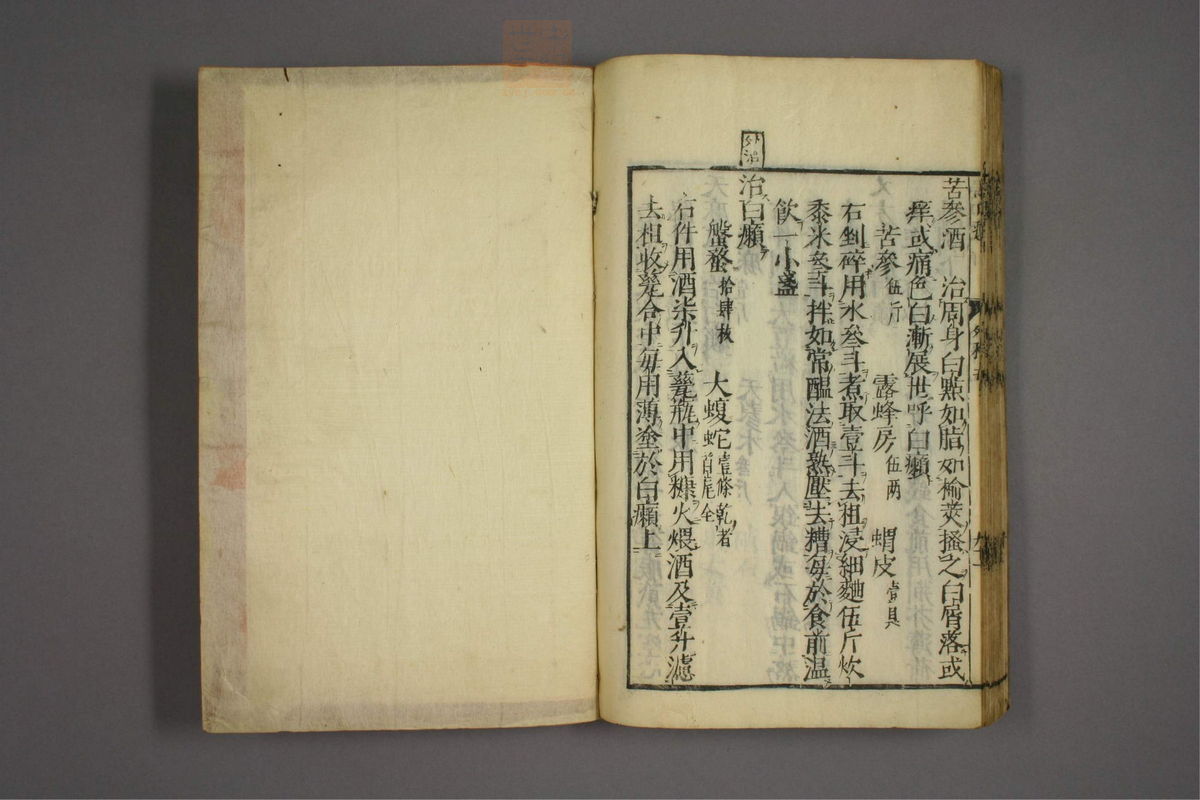 苦參酒 治周身白點如脂如榆莢搔之白屑落或
痒或痛色白漸展世呼白癩
苦參伍斤 露蜂房伍两 蝟皮壹具
右剉碎用水叄斗煮取壹斗去柤浸細麯伍斤炊
黍米叄斗拌如常醞法酒熟壓去糟每於食前温
飲一小盞
外治
治白癩
螌蝥拾肆枚 大蝮蛇壹條乾者蛇首尾全
右件用酒柒升入甆瓶中用糠火煨酒及壹升濾
去柤收甆合中每用薄塗於白癩上